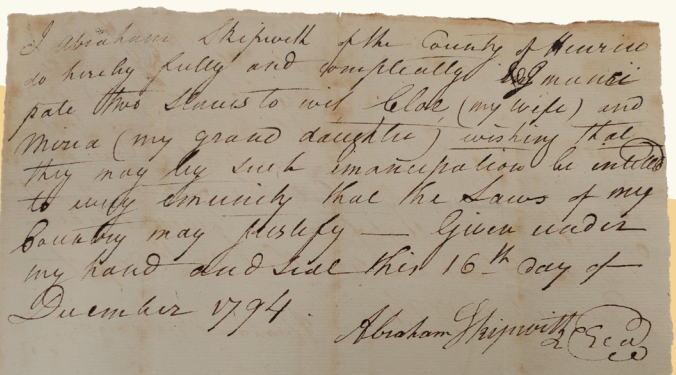 I Abraham Skipwith of the County of Henrico
do hereby fully and compleatly Emanci
pate two slaves to wit Cloe (my wife) and
Miria (my grand daughter) wishing that
they may by such emancipation be intitled
to every emunity that the Laws of my
Country may justify — Given under
my hand and seal this 16th day of
December 1794.
Abraham Skipwith